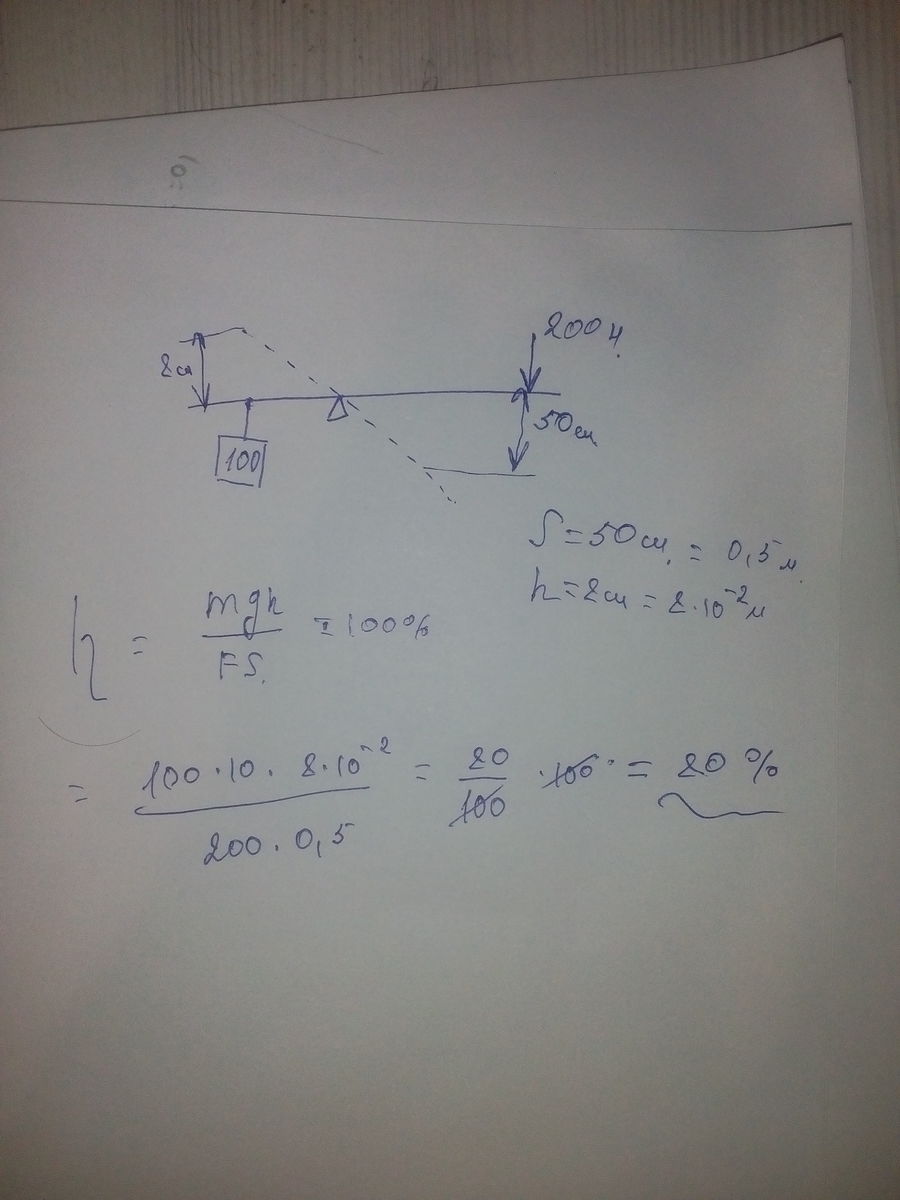 200н.
8см
50см
100
S = 50см. = 0,5м.
h = 8см = 8·10⁻²м
η = mgh / FS. = 100%
= 100·10·8·10⁻² / 200·0,5 = 80/100 · 100 · = 80%